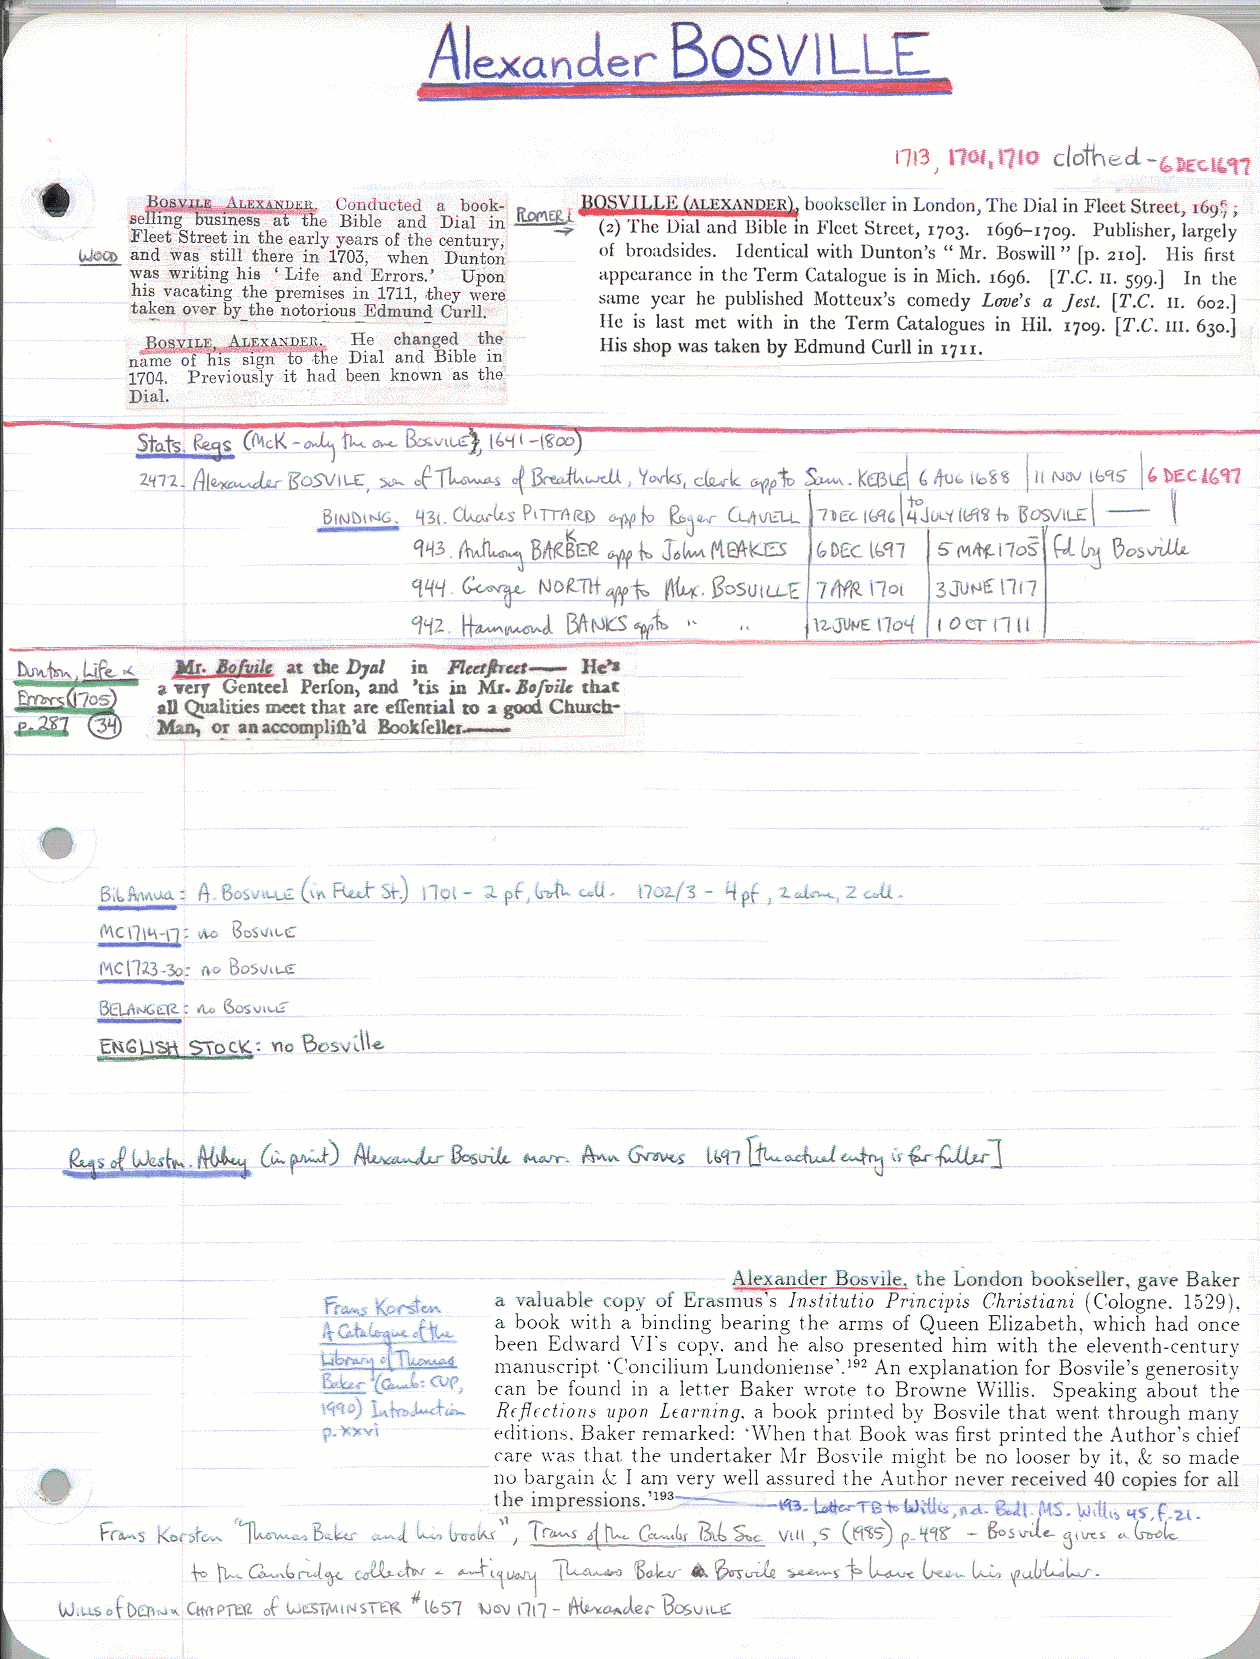 Alexander BOSVILLE
1713, 1701, 1710 clothed - 6 DEC 1697
WOOD
BOSVILE ALEXANDER. Conducted a book-
selling business at the Bible and Dial in
Fleet Street in the early years of the century,
and was still there in 1703, when Dunton
was writing his ' Life and Errors.' Upon
his vacating the premises in 1711, they were
taken over by the notorious Edmund Curll.
BOSVILE, ALEXANDER. He changed the
name of his sign to the Dial and Bible in
1704. Previously it had been known as the
Dial.
PLOMER I
BOSVILLE (ALEXANDER), bookseller in London, The Dial in Fleet Street, 1696;
(2) The Dial and Bible in Fleet Street, 1703. 1696–1709. Publisher, largely
of broadsides. Identical with Dunton's " Mr. Boswill " [p. 210]. His first
appearance in the Term Catalogue is in Mich. 1696. [T.C. II. 599.] In the
same year he published Motteux's comedy Love's a Jest. [T.C. II. 602.]
He is last met with in the Term Catalogues in Hil. 1709. [T.C. III. 630.]
His shop was taken by Edmund Curll in 1711.
Stats. Regs (McK - only the one BOSVILE, 1641-1800)
2472. Alexander BOSVILE, son of Thomas of Breathwell, Yorks, clerk app to Sam. KEBLE 6 AUG 1688 11 NOV 1695 6 DEC 1697
BINDING. 431. Charles PITTARD app to Roger CLAVELL 7 DEC 1696 to 4 JULY 1698 to BOSVILE —
943. Anthony BARKER app to John MEAKES 6 DEC 1697 5 MAR 1705 fd by Bosville
944. George NORTH app to Alex. BOSVILLE 7 APR 1701 3 JUNE 1717
942. Hammond BANKS app to " " 12 JUNE 1704 1 OCT 1711
Dunton, Life &
Errors (1705)
p. 287 (34)
Mr. Boſvile at the Dyal in Fleetſtreet—— He's
a very Genteel Perſon, and 'tis in Mr. Boſvile that
all Qualities meet that are eſſential to a good Church-
Man, or an accompliſh'd Bookſeller.——
Bib Annua: A. BOSVILLE (in Fleet St.) 1701 - 2 pf, both coll. 1702/3 - 4 pf, 2 alone, 2 coll.
MC1714-17: no BOSVILE
MC1723-30: no BOSVILE
BELANGER: no BOSVILE
ENGLISH STOCK: no Bosville
Regs of Westm. Abbey (in print) Alexander Bosvile marr. Ann Groves 1697 [the actual entry is far fuller]
Frans Korsten
A Catalogue of the
Library of Thomas
Baker (Camb: CUP,
1990) Introduction
p. xxvi
Alexander Bosvile, the London bookseller, gave Baker
a valuable copy of Erasmus's Institutio Principis Christiani (Cologne, 1529),
a book with a binding bearing the arms of Queen Elizabeth, which had once
been Edward VI's copy, and he also presented him with the eleventh-century
manuscript 'Concilium Lundoniense'.192 An explanation for Bosvile's generosity
can be found in a letter Baker wrote to Browne Willis. Speaking about the
Reflections upon Learning, a book printed by Bosvile that went through many
editions, Baker remarked: 'When that Book was first printed the Author's chief
care was that the undertaker Mr Bosvile might be no looser by it, & so made
no bargain & I am very well assured the Author never received 40 copies for all
the impressions.'193
193. Letter TB to Willis, n.d. Bodl. MS. Willis 45, f. 21.
Frans Korsten "Thomas Baker and his books", Trans of the Camb Bib Soc VIII, 5 (1985) p. 498 - Bosvile gives a book
to the Cambridge collector & antiquary Thomas Baker Bosvile seems to have been his publisher.
WILLS of DEAN & CHAPTER of WESTMINSTER #1657 NOV 1717 - Alexander BOSVILE